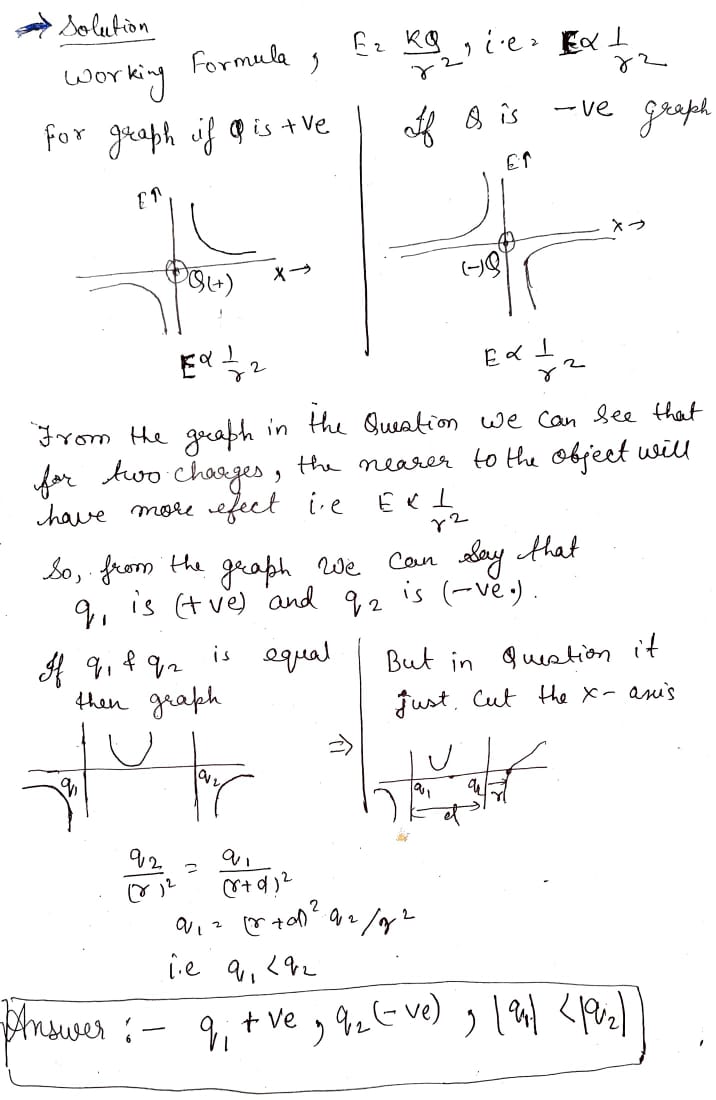 → Solution
Working Formula, E = KQ/r², i.e = E∝ 1/r²
For graph if Q is +ve
If Q is -ve graph
E↑
Q(+)
X→
E∝ 1/r²
E↑
X→
(-)Q
E∝ 1/r²
From the graph in the Question we can see that
for two charges, the nearer to the object will
have more efect i.e E ∝ 1/r²
So, from the graph we can say that
q₁ is (+ve) and q₂ is (-ve.).
If q₁ & q₂ is equal
then graph
q₁
q₂
⇒
But in Question it
just. Cut the x-axis
q₁
q₂
r
d
q₂/(r)² = q₁/(r+d)²
q₁ = (r+d)² q₂/r²
i.e q₁ < q₂
Answer :- q₁ +ve, q₂(-ve), |q₁| < |q₂|